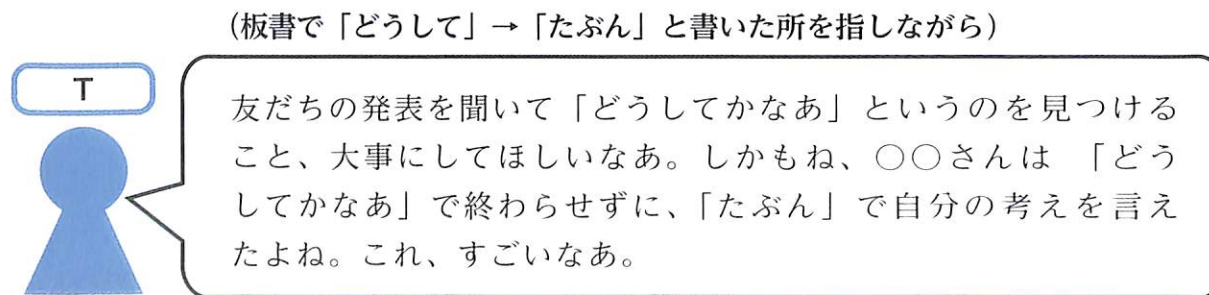 (板書で「どうして」→「たぶん」と書いた所を指しながら)
T
友だちの発表を聞いて「どうしてかなあ」というのを見つける
こと、大事にしてほしいなあ。しかもね、○○さんは 「どう
してかなあ」で終わらせずに、「たぶん」で自分の考えを言え
たよね。これ、すごいなあ。